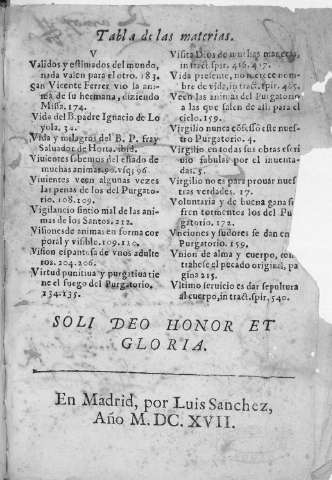 Tabla de las materias.
V
Validos y estimados del mundo,
nada valen para el otro. 183.
san Vicente Ferrer vio la ani-
ma de su hermana, diziendo
Missa. 174.
Vida del B. padre Ignacio de Lo
yola, 32.
Vida y milagros del B. P. fray
Saluador de Horta. ibid.
Viuientes sobemos del estado de
muchas animas. 90. vsq; 96
Viuientes veen algunas vezes
las penas de los del Purgato-
rio. 108. 109.
Vigilancio sintio mal de las ani
mas de los Santos. 212.
Visiones de animas en forma cor
poral y visible. 109. 110.
Vision espantosa de vnos adulte
ros. 204. 206.
Virtud punitiua y purgatiua tie
ne el fuego del Purgatorio.
134. 135.
Visita Dios de muchas maneras,
in tract. spir. 416. 417.
Vida presente, no merece nom-
bre de vida, in tract. spir. 465.
Veen las animas del Purgatorio
a las que salen de alli para el
cielo. 159.
Virgilio nunca cōfesso este nues-
tro Purgatorio. 4.
Virgilio en todas sus obras escri
uio fabulas por el inuenta-
das. 5.
Virgilio no es para prouar nues-
tras verdades. 17.
Voluntaria y de buena gana si
fren tormentos los del Pu
gatorio. 172.
Vnciones y sudores se dan en
Purgatorio. 159.
Vnion de alma y cuerpo, con
trahese el pecado original, pa
gina 215.
Vltimo seruicio es dar sepultura
al cuerpo, in tract. spir. 540.
SOLI DEO HONOR ET
GLORIA.
En Madrid, por Luis Sanchez,
Año M. DC. XVII.